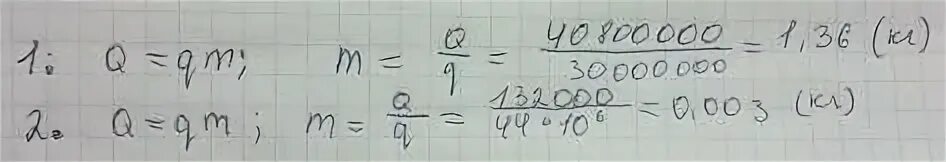 1. Q = qm; m = Q/q = 40800000/30000000 = 1,36 (кг)
2. Q = qm; m = Q/q = 132000/44·10⁶ = 0,003 (кг)